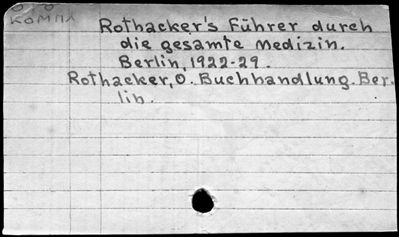 КОМПЛ
Rothacker's Führer durch
die gesamte Medizin.
Berlin, 1922-29.
Rothacker, O. Buchhandlung. Ber-
lin.